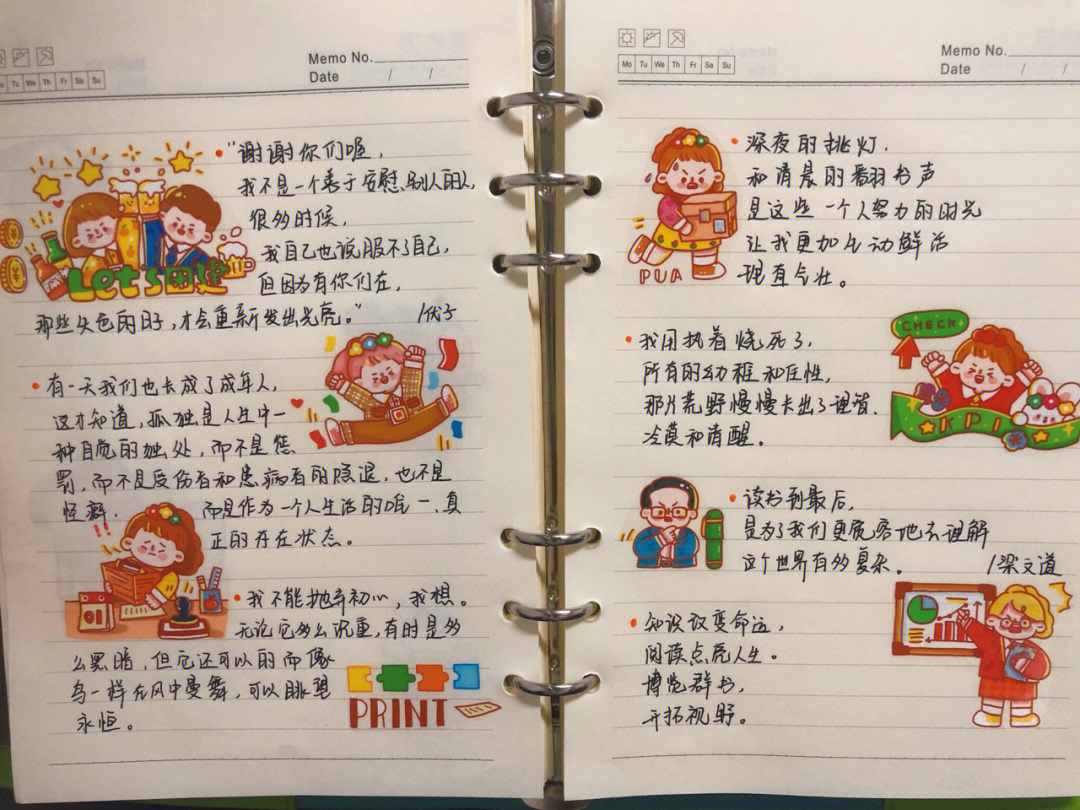 Tu We Th Fr Sa Su
Memo No.
Date / /
"谢谢你们喔，
我不是一个善于安慰别人的人，
很多时候，
我自己也说服不了自己，
但因为有你们在，
那些失色的日子，才会重新发出光亮。"
Let's团建
有一天我们也长成了成年人，
这才知道，孤独是人生中一
种自觉的独处，而不是惩
罚，而不是受伤者和患病者的隐退，也不是
怪癖，而是作为一个人生活的唯一、真
正的存在状态。
我不能抛弃初心，我想。
无论它多么沉重，有时是多
么黑暗，但它还可以的而像
鸟一样在风中曼舞，可以眺望
永恒。
PRINT
Mo Tu We Th Fr Sa Su
Memo No.
Date / /
深夜的挑灯，
和清晨的翻书声
是这些一个人努力的时光
让我更加生动鲜活
理直气壮。
PUA
我用执着烧死了，
所有的幼稚和任性，
那片荒野慢慢长出了理智，
冷漠和清醒。
CHECK
KPI
读书到最后，
是为了我们更宽容地去理解
这个世界有多复杂。
/梁文道
知识改变命运，
阅读点亮人生。
博览群书，
开拓视野。